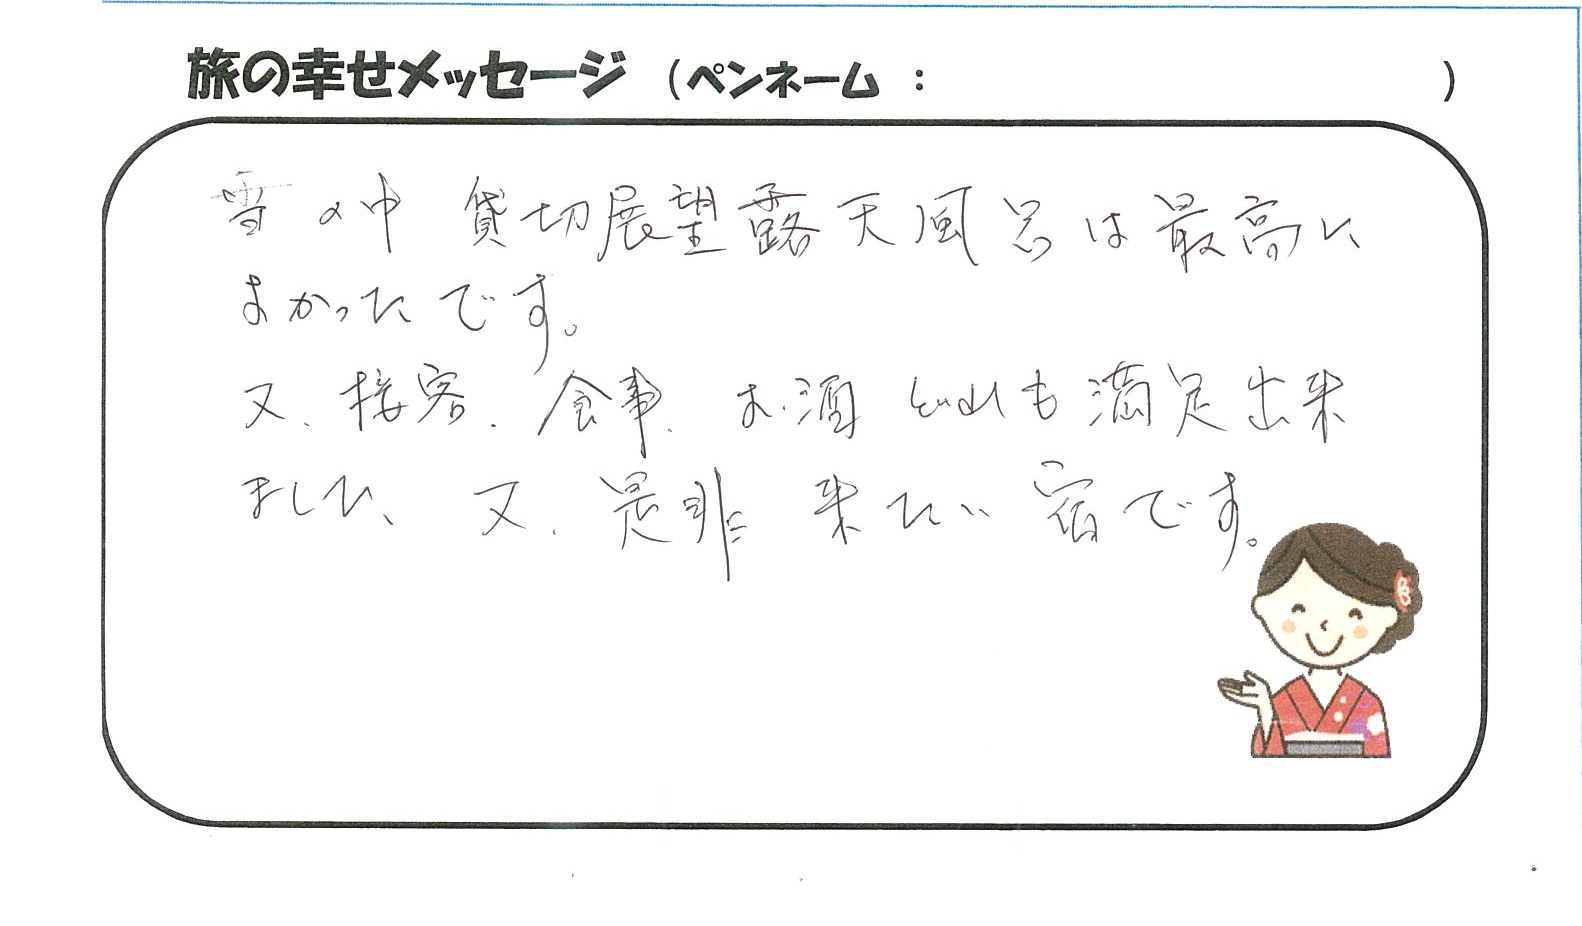 旅の幸せメッセージ (ペンネーム : )
雪の中 貸切展望露天風呂は最高に
よかったです。
又、接客、食事、お酒 どれも満足出来
ました、又、是非 来たい 宿です。